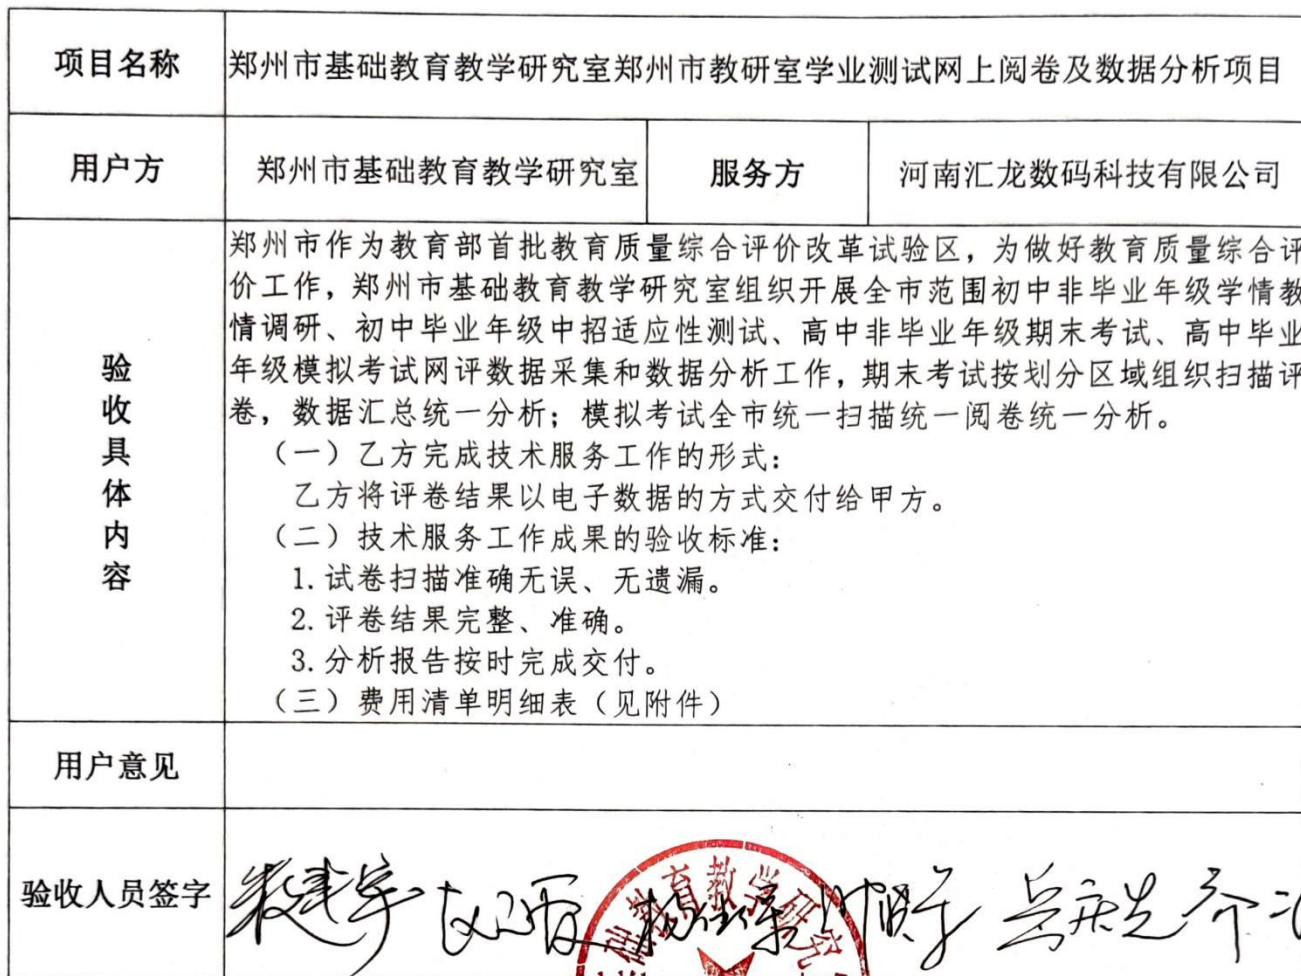 项目名称 郑州市基础教育教学研究室郑州市教研室学业测试网上阅卷及数据分析项目
用户方 郑州市基础教育教学研究室 服务方 河南汇龙数码科技有限公司
验收具体内容
郑州市作为教育部首批教育质量综合评价改革试验区，为做好教育质量综合评
价工作，郑州市基础教育教学研究室组织开展全市范围初中非毕业年级学情教
情调研、初中毕业年级中招适应性测试、高中非毕业年级期末考试、高中毕业
年级模拟考试网评数据采集和数据分析工作，期末考试按划分区域组织扫描评
卷，数据汇总统一分析；模拟考试全市统一扫描统一阅卷统一分析。
（一）乙方完成技术服务工作的形式：
乙方将评卷结果以电子数据的方式交付给甲方。
（二）技术服务工作成果的验收标准：
1.试卷扫描准确无误、无遗漏。
2.评卷结果完整、准确。
3.分析报告按时完成交付。
（三）费用清单明细表（见附件）
用户意见
验收人员签字
础教育教学研究